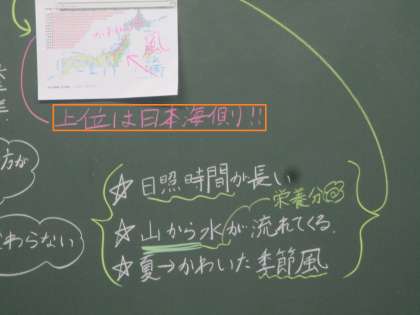 風
上位は日本海側!!
方が
わらない
☆日照時間が長い
栄養分
☆山から水が流れてくる。
☆夏→かわいた季節風